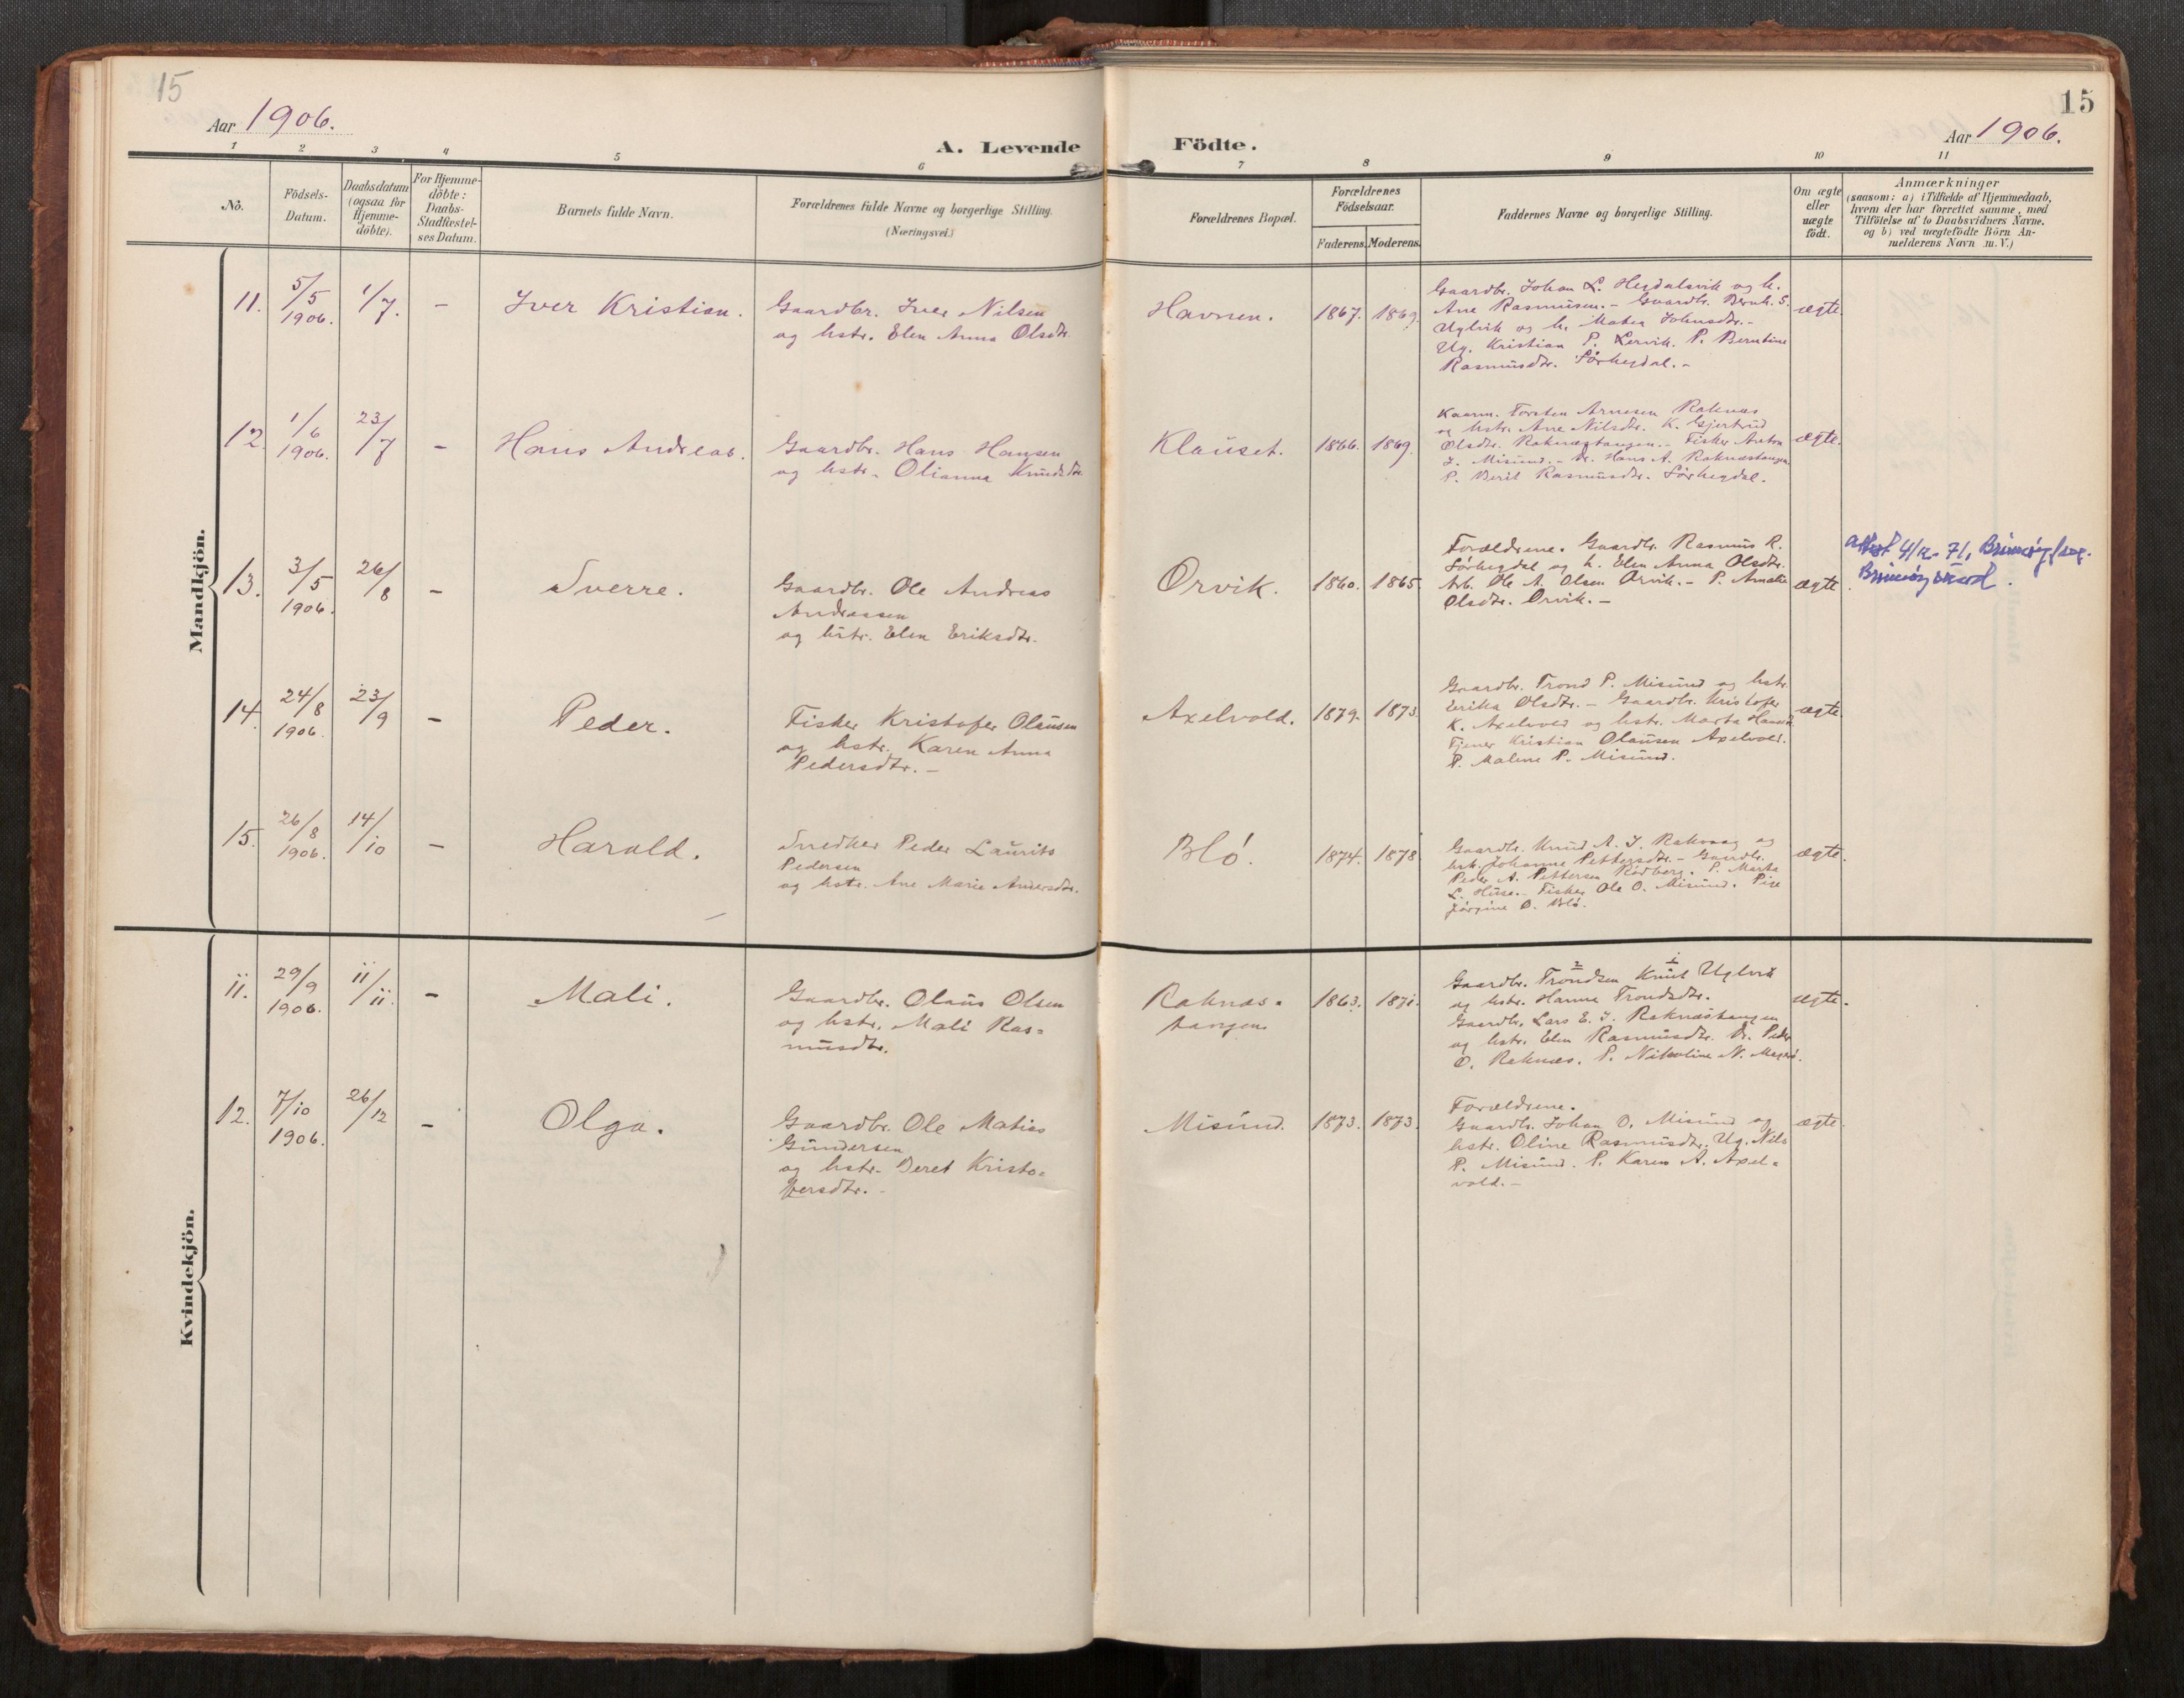 15
15
Aar 1906.
A. Levende Födte.
Aar 1906.
1 2 3 4 5 6 7 8 9 10 11
No.
Födsels-
Datum.
Daabsdatum
(ogsaa for
Hjemme-
döbte).
For Hjemme-
döbte:
Daabs-
Stadfæstel-
ses Datum.
Barnets fulde Navn.
Forældrenes fulde Navne og borgerlige Stilling.
(Næringsvei.)
Forældrenes Bopæl.
Forældrenes
Födselsaar.
Faderens. Moderens.
Faddernes Navne og borgerlige Stilling.
Om ægte
eller
uægte
födt.
Anmærkninger
(saasom: a) i Tilfælde af Hjemmedaab,
hvem der har forrettet samme, med
Tilföielse af to Daabsvidners Navne,
og b) ved uægtefödte Börn An-
melderens Navn m. V.)
Mandkjön.
11.
5/5
1906.
1/7.
-
Iver Kristian.
Gaardbr. Iver Nilsen
og hstr. Elen Anna Olsdtr.
Havnen.
1867. 1869.
Gaardbr. Johan L. Hegdalsvik og h.
Ane Rasmusen. - Gaardbr. Bernh. S.
Uglvik og h. Matea Johnsdtr. -
Ug. Kristian P. Lervik. P. Berntine
Rasmusdtr. Sørhegdal. -
ægte.
12.
1/6
1906.
23/7
-
Hans Andreas.
Gaardbr. Hans Hansen
og hstr. Olianna Knudsdtr.
Klauset.
1866. 1869.
Kaarm. Torsten Arnesen Raknæs
og hstr. Ane Nilsdtr. K. Gjertrud
Olsdtr. Raknæstangen. - Fisker Anton
J. Misund. - Dr. Hans A. Raknæstangen.
P. Berit Rasmusdtr. Sørhegdal.
ægte.
13.
3/5
1906.
26/8
-
Sverre.
Gaardbr. Ole Andreas
Andreassen
og hstr. Elen Eriksdtr.
Orvik.
1860. 1865.
Forældrene. Gaardbr. Rasmus R.
Sørhegdal og h. Elen Anna Olsdtr.
Arb. Ole A. Olsen Orvik. - P. Amalie
Olsdtr. Orvik. -
ægte.
attest 4/12-71,
14.
24/8
1906.
23/9
-
Peder.
Fisker Kristofer Olausen
og hstr. Karen Anna
Pedersdtr. -
Axelvold.
1879. 1873.
Gaardbr. Trond P. Misund og hstr.
Erika Olsdtr. - Gaardbr. Kristofer
K. Axelvold og hstr. Marta Hansd.
Tjener Kristian Olausen Axelvold.
P. Malene P. Misund.
ægte.
15.
26/8
1906.
14/10
-
Harald.
Snedker Peder Laurits
Pedersen
og hstr. Ane Marie Andersdtr.
Blø.
1874. 1878.
Gaardbr. Knud A. J. Rakvaag og
hstr. Johanne Pettersdtr. - Gaardbr.
Peder A. Pettersen Rødberg. P. Marta
L. Huse. - Fisker Ole O. Misund. Pige
Jørgine O. Blø.
ægte.
Kvindekjön.
11.
29/9
1906.
11/11.
-
Mali.
Gaardbr. Olaus Olsen
og hstr. Mali Ras=
musdtr.
Raknæs=
tangen
1863. 1871.
Gaardbr. Trondsen Knut Uglvik
og hstr. Hanna Trondsdtr.
Gaardbr. Lars E. J. Raknæstangen
og hstr. Elen Rasmusdtr. Dr. Peder
O. Raknæs. P. Nikoline N. Magerø.
ægte.
12.
7/10
1906.
26/12
-
Olga.
Gaardbr. Ole Matias
Gundersen
og hstr. Beret Kristo=
fersdtr. -
Misund.
1873. 1873.
Forældrene.
Gaardbr. Johan O. Misund og
hstr. Oline Rasmusdtr. Ug. Nils
P. Misund. P. Karen A. Axel=
vold. -
ægte.